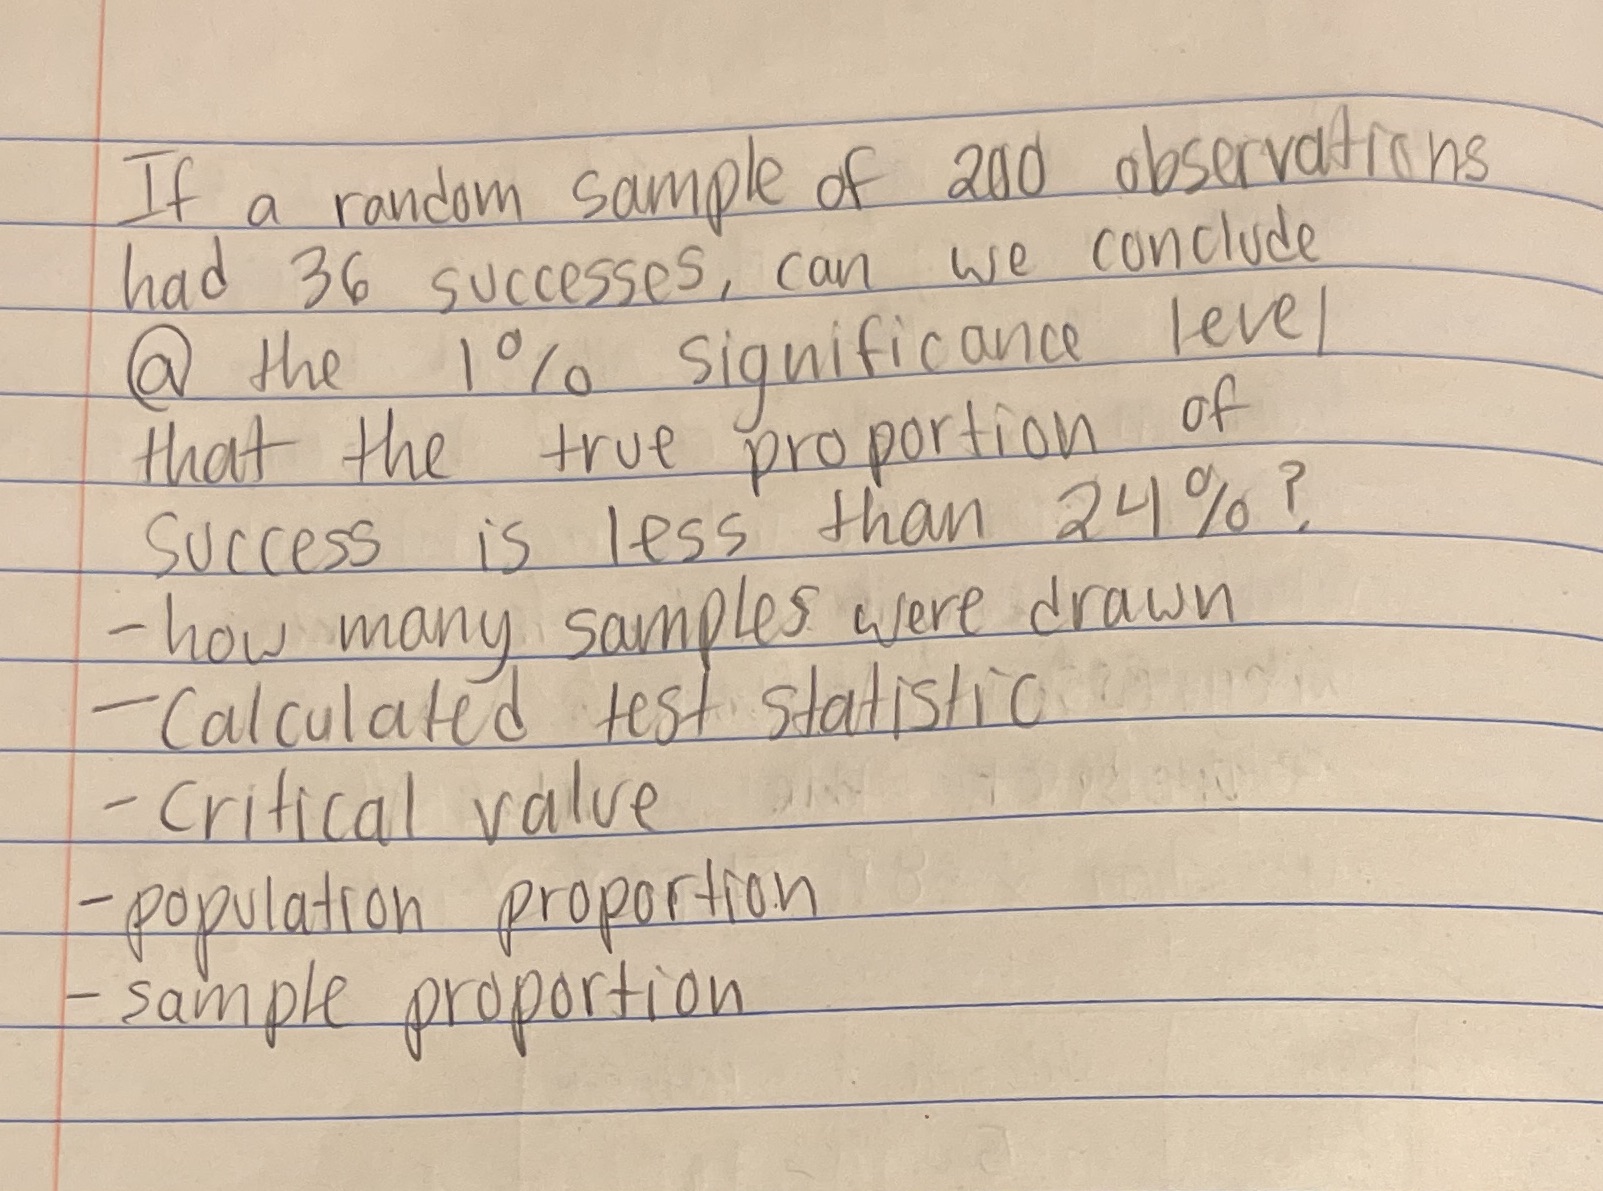 If a random sample of 200 observations
had 36 successes, can we conclude
@ the 1% significance level
that the true proportion of
success is less than 24%?
- how many samples were drawn
- Calculated test statistic
- Critical value
- population proportion
- sample proportion